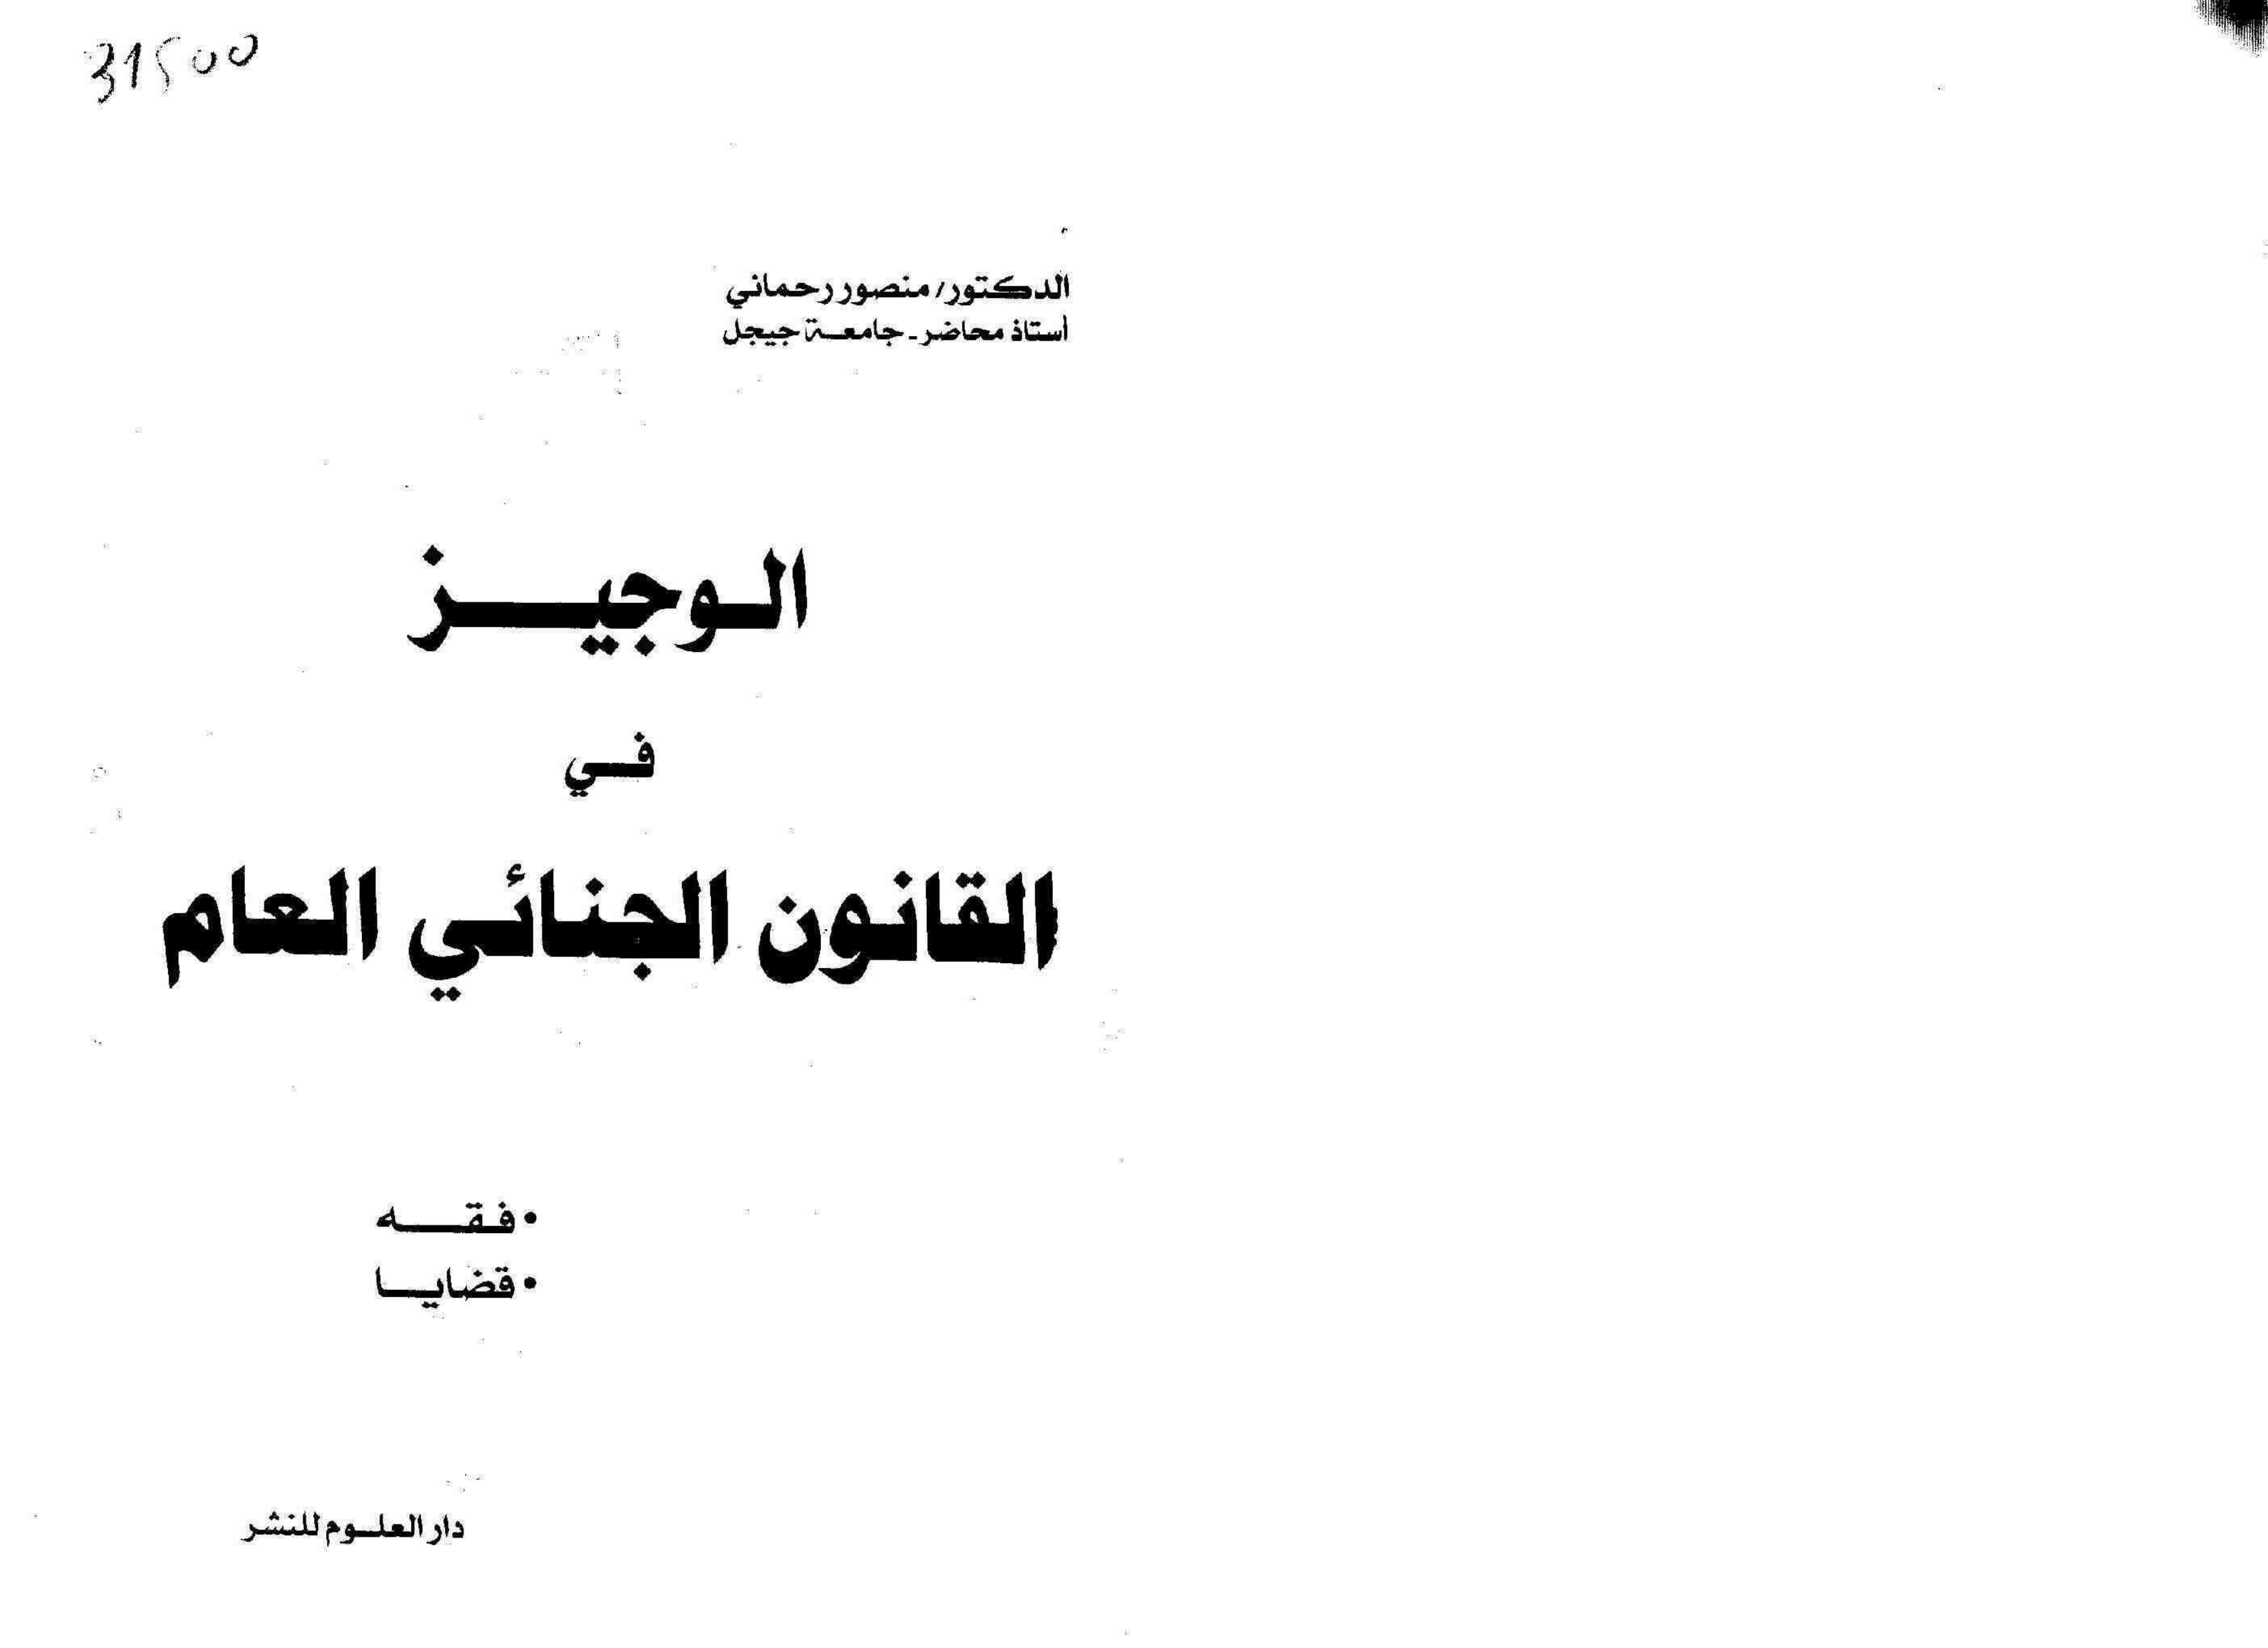 31500
الدكتور/ منصور رحماني
أستاذ محاضر - جامعة جيجل
الوجيز
في
القانون الجنائي العام
• فقه
• قضايا
دار العلوم للنشر